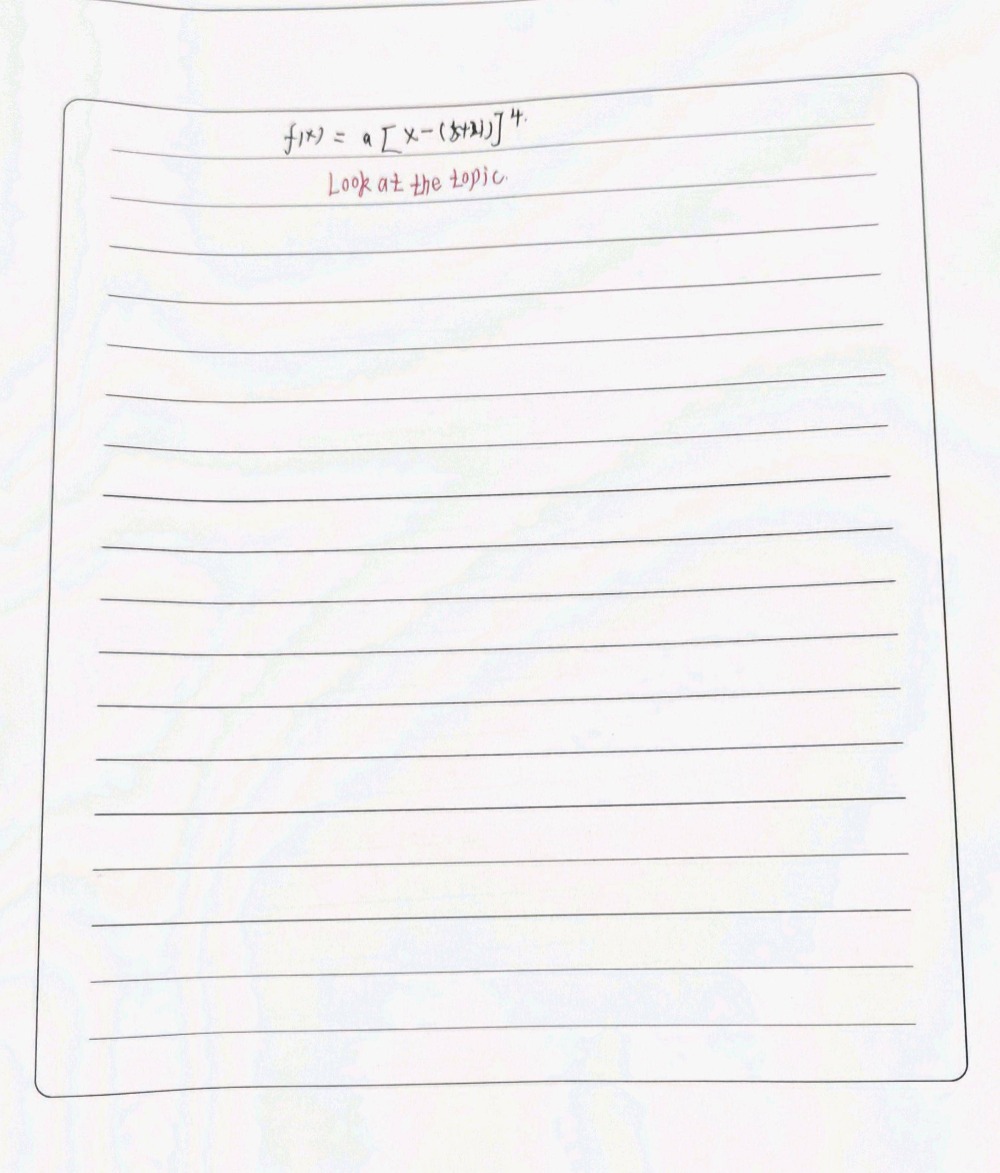 f(x) = a [x-(5+2i)]⁴.
Look at the topic.